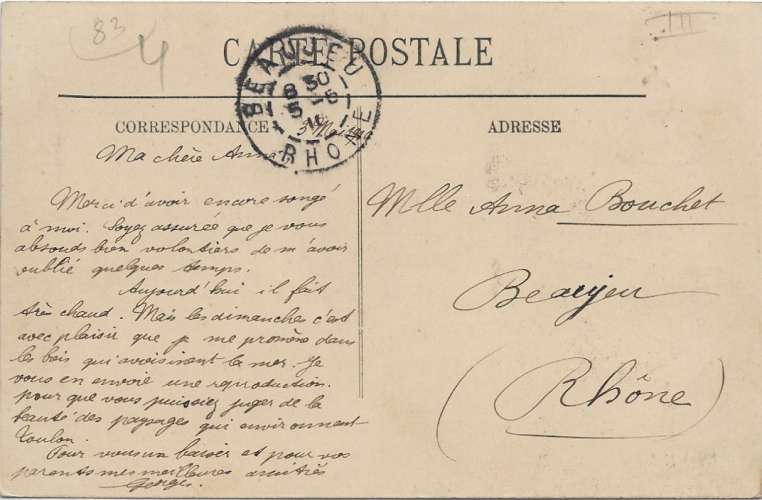 83
CARTE POSTALE
BEAUJEU
8 30
5 -5
RHONE
CORRESPONDANCE
ADRESSE
3 Mai
Ma chère Anna
Merci d'avoir encore songé
à moi. Soyez assurée que je vous
absouds bien volontiers de m'avoir
oublié quelques temps.
Aujourd'hui il fait
très chaud. Mais les dimanches c'est
avec plaisir que je me promène dans
les bois qui avoisinent la mer. Je
vous en envoie une reproduction.
pour que vous puissiez juger de la
beauté des paysages qui environnent
Toulon.
Pour vous un baiser et pour vos
parents mes meilleures amitiés
Georges.
Mlle Anna Bouchet
Beaujeu
(Rhône)